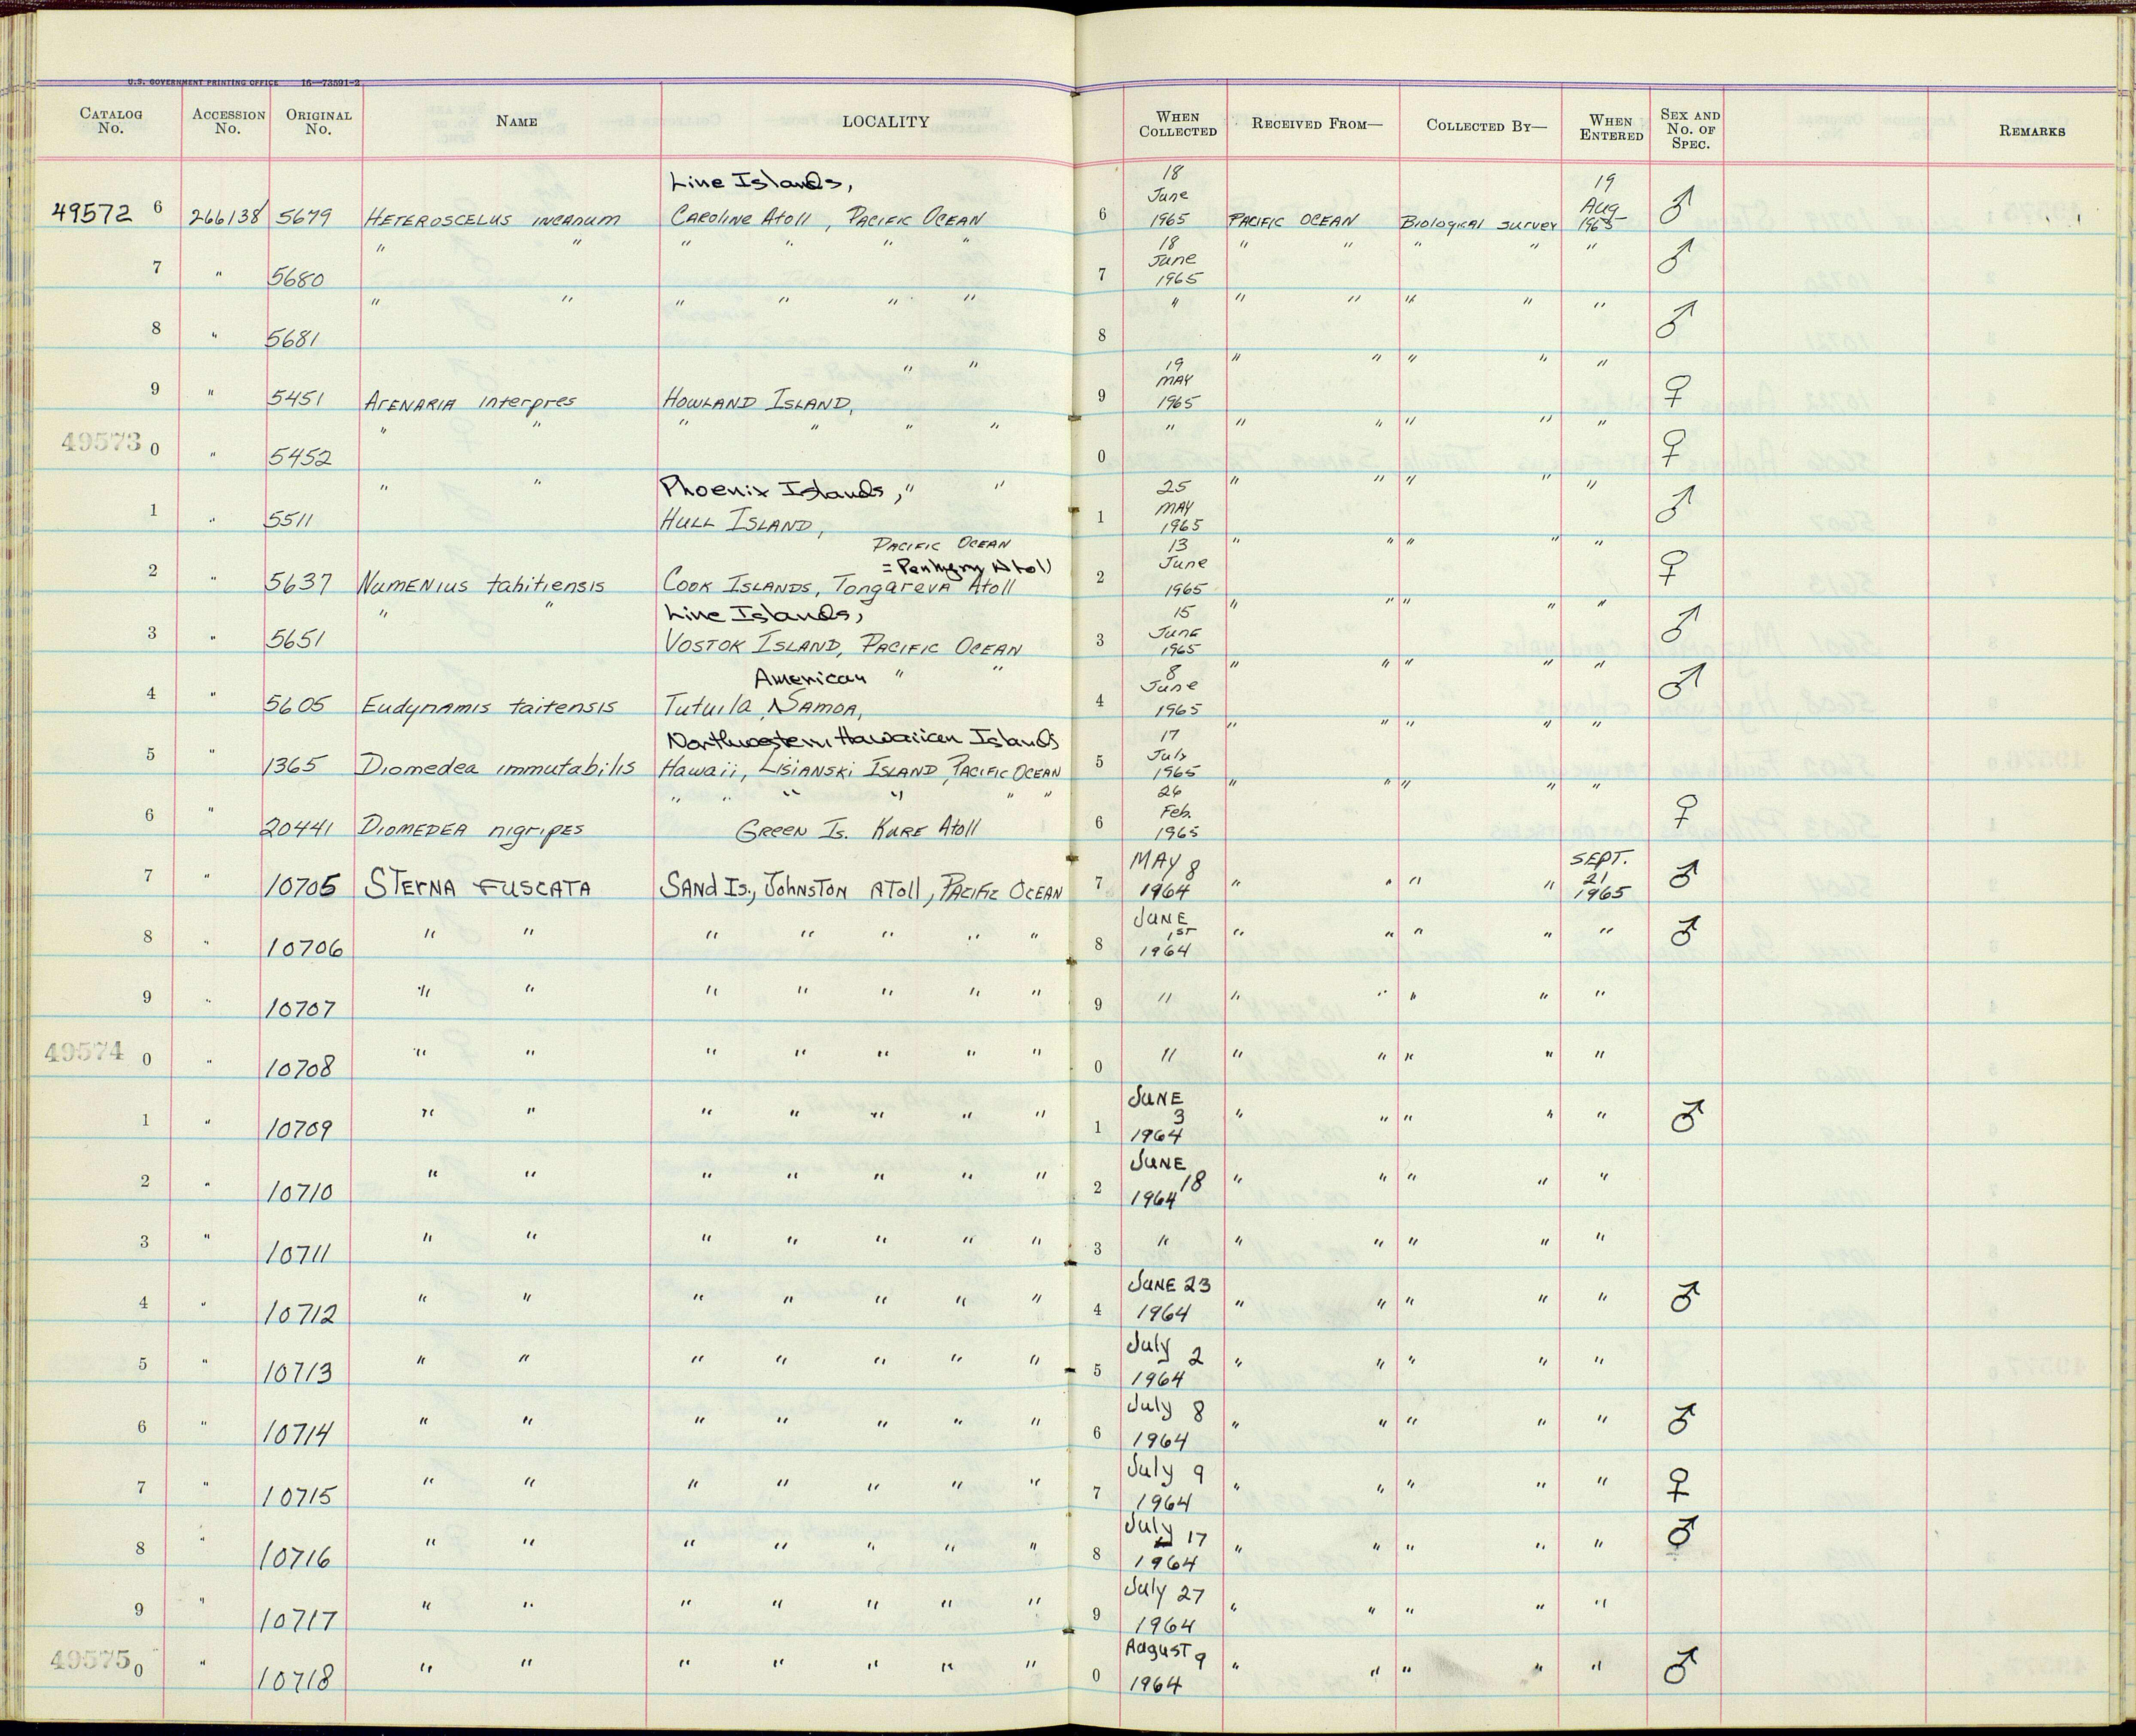 U.S. GOVERNMENT PRINTING OFFICE 16—73591-2
CATALOG No. ACCESSION No. ORIGINAL No. NAME LOCALITY WHEN COLLECTED RECEIVED FROM— COLLECTED BY— WHEN ENTERED SEX AND No. OF SPEC. REMARKS
Line Islands,
49572 6 266138 5679 HETEROSCELUS INCANUM CAROLINE Atoll, PACIFIC OCEAN 6 18 June 1965 PACIFIC OCEAN Biological survey 19 Aug 1965 ♂
7 " 5680 " " " " " " 7 18 June 1965 " " " " " ♂
8 " 5681 " " " " " " 8 " " " " " " ♂
9 " 5451 ArENARIA interpres HOWLAND ISLAND, " " 9 19 MAY 1965 " " " " " ♀
49573 0 " 5452 " " " " " " 0 " " " " " " ♀
Phoenix Islands, " "
1 " 5511 " " HULL ISLAND, 1 25 MAY 1965 " " " " " ♂
PACIFIC OCEAN
= Penhryn Atoll
2 " 5637 NUMENIUS tahitiensis COOK ISLANDS, TongarevA Atoll 2 13 June 1965 " " " " " ♀
Line Islands,
3 " 5651 " " VOSTOK ISLAND, PACIFIC OCEAN 3 15 June 1965 " " " " " ♂
American " "
4 " 5605 Eudynamis taitensis Tutuila, SAMOA, 4 8 June 1965 " " " " " ♂
Northwestern Hawaiian Islands
5 " 1365 Diomedea immutabilis Hawaii, LISIANSKI ISLAND, PACIFIC OCEAN 5 17 July 1965 " " " " "
" " " " " "
6 " 20441 DIOMEDEA nigripes GREEN Is. KURE Atoll 6 26 Feb. 1965 " " " " " ♀
7 " 10705 STERNA FUSCATA SAND Is., JOHNSTON ATOLL, PACIFIC OCEAN 7 MAY 8 1964 " " " " SEPT. 21 1965 ♂
8 " 10706 " " " " " " " 8 JUNE 1ST 1964 " " " " " ♂
9 " 10707 " " " " " " " 9 " " " " " "
49574 0 " 10708 " " " " " " " 0 " " " " " "
1 " 10709 " " " " " " " 1 JUNE 3 1964 " " " " " ♂
2 " 10710 " " " " " " " 2 JUNE 18 1964 " " " " "
3 " 10711 " " " " " " " 3 " " " " " "
4 " 10712 " " " " " " " 4 JUNE 23 1964 " " " " " ♂
5 " 10713 " " " " " " " 5 July 2 1964 " " " " "
6 " 10714 " " " " " " " 6 July 8 1964 " " " " " ♂
7 " 10715 " " " " " " " 7 July 9 1964 " " " " " ♀
8 " 10716 " " " " " " " 8 July 17 1964 " " " " " ♂
9 " 10717 " " " " " " " 9 July 27 1964 " " " " "
49575 0 " 10718 " " " " " " " 0 August 9 1964 " " " " " ♂